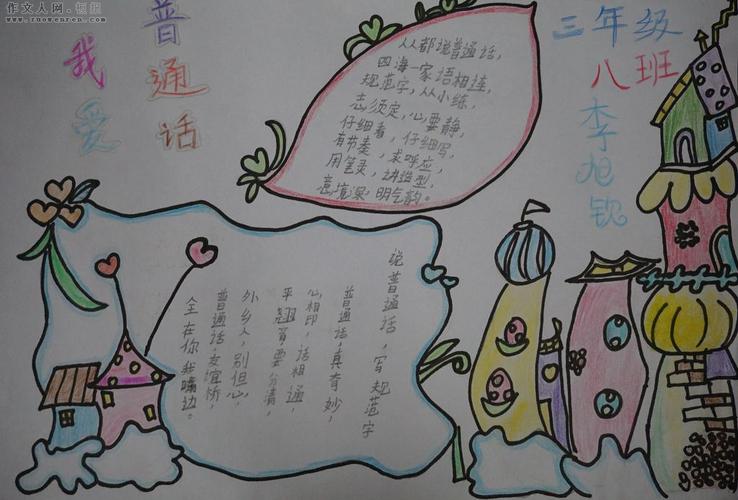 作文人网
www.zuowenren.com
我爱
普通话
三年级
八班
李旭钦
从都说普通话,
四海一家语相连,
规范字,从小练,
志须定,心要静,
仔细看,仔细写,
有节奏,求呼应,
用笔灵,讲造型,
意境深,明气韵。
说普通话,写规范字
普通话,真奇妙,
心相印,话相通,
平翘音,要分清,
外乡人,别但心,
普通话,友谊桥,
全在你我嘴边。